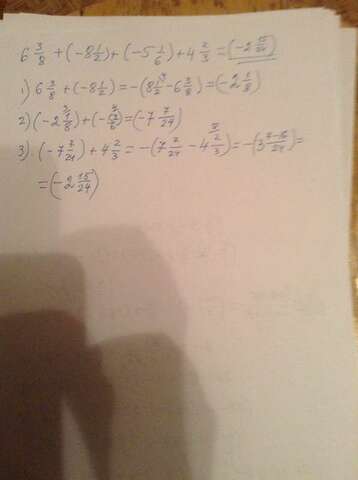 6 3/8 + (-8 1/2) + (-5 1/6) + 4 2/3 = (-2 15/24)
1) 6 3/8 + (-8 1/2) = -(8 1/2 - 6 3/8) = (-2 1/8)
2) (-2 1/8) + (-5 1/6) = (-7 7/24)
3). (-7 7/24) + 4 2/3 = -(7 7/24 - 4 2/3) = -(3 7-16/24) =
= (-2 15/24)